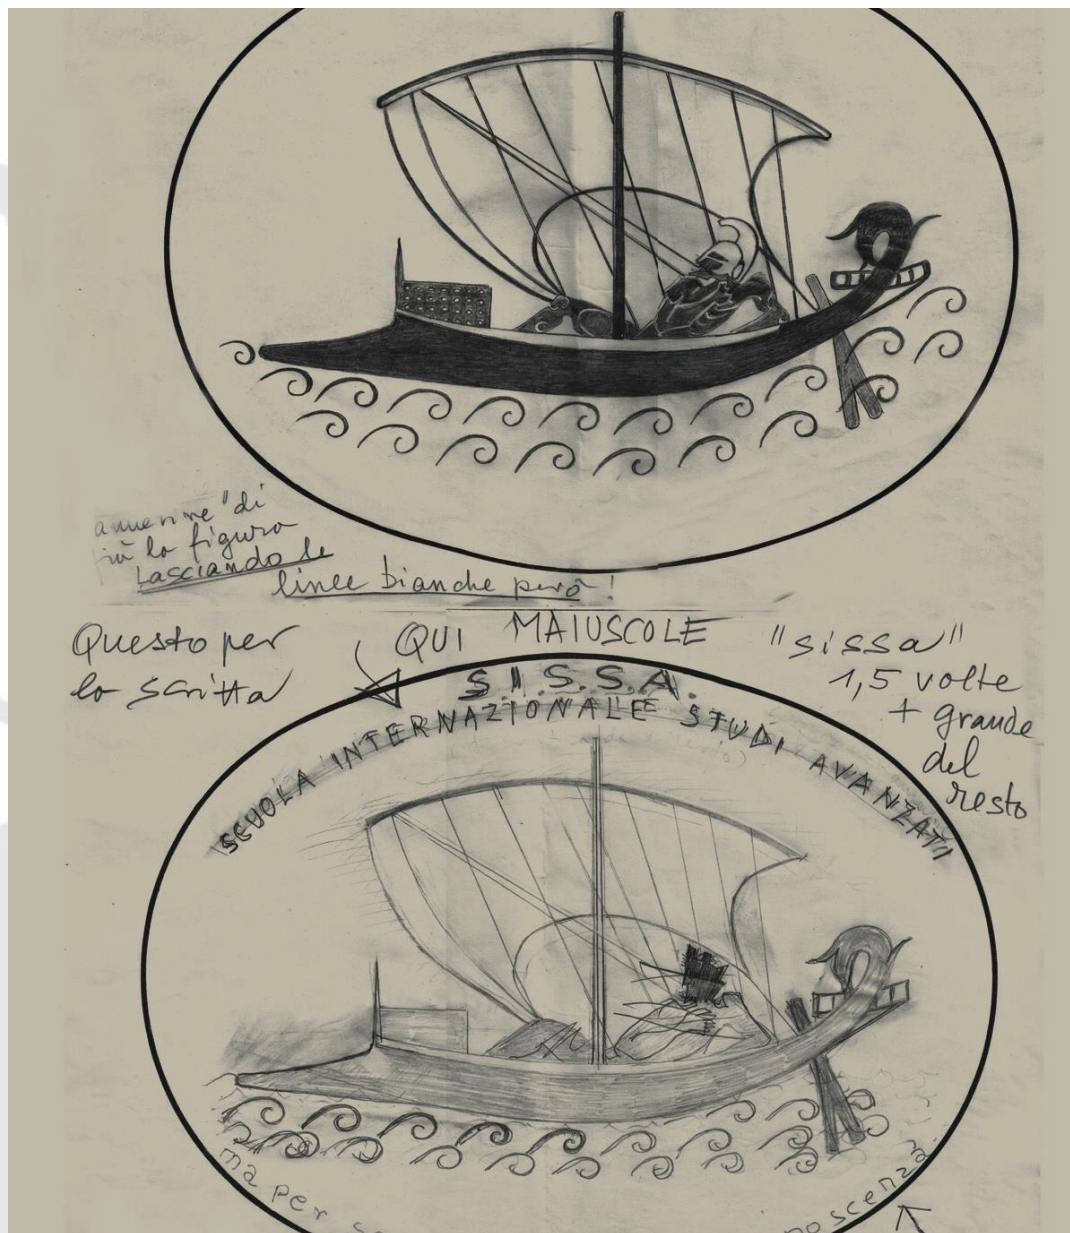 annerire "di
più la figura
Lasciando le
linee bianche però!
Questo per
la scritta
QUI MAIUSCOLE
"sissa"
1,5 volte
+ grande
del
resto
S.I.S.S.A.
SCUOLA INTERNAZIONALE STUDI AVANZATI
ma per se
noscenza